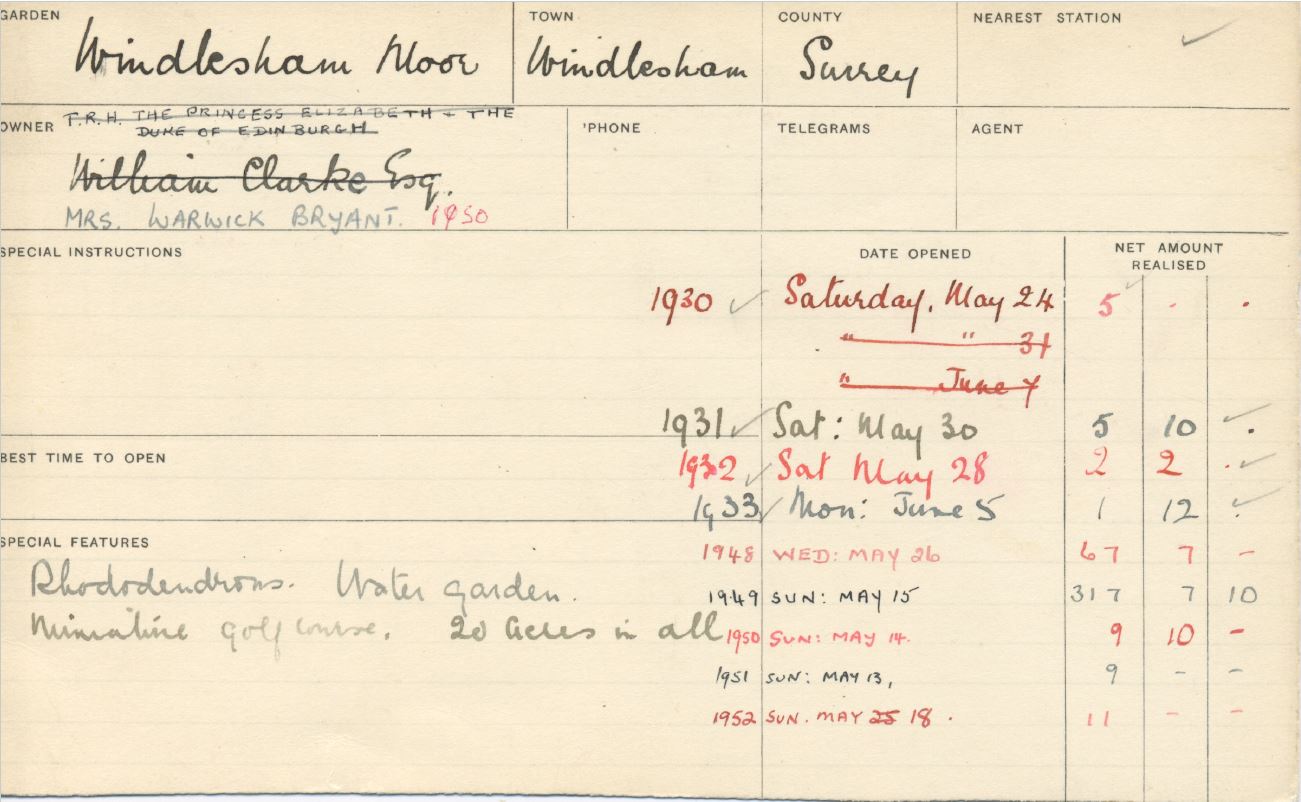 GARDEN TOWN COUNTY NEAREST STATION
Windlesham Moor Windlesham Surrey
OWNER T.R.H. THE PRINCESS ELIZABETH + THE
DUKE OF EDINBURGH
'PHONE TELEGRAMS AGENT
William Clarke Esq.
MRS. WARWICK BRYANT. 1950
SPECIAL INSTRUCTIONS DATE OPENED NET AMOUNT
REALISED
1930 Saturday, May 24 5 - .
" " 31
" June 7
1931 Sat: May 30 5 10 .
BEST TIME TO OPEN
1932 Sat May 28 2 2 .
1933 Mon: June 5 1 12 .
SPECIAL FEATURES
1948 WED: MAY 26 67 7 -
Rhododendrons. Water garden.
1949 SUN: MAY 15 317 7 10
Miniature golf course. 20 acres in all
1950 SUN: MAY 14. 9 10 -
1951 SUN: MAY 13, 9 - -
1952 SUN. MAY 25 18 . 11 - -